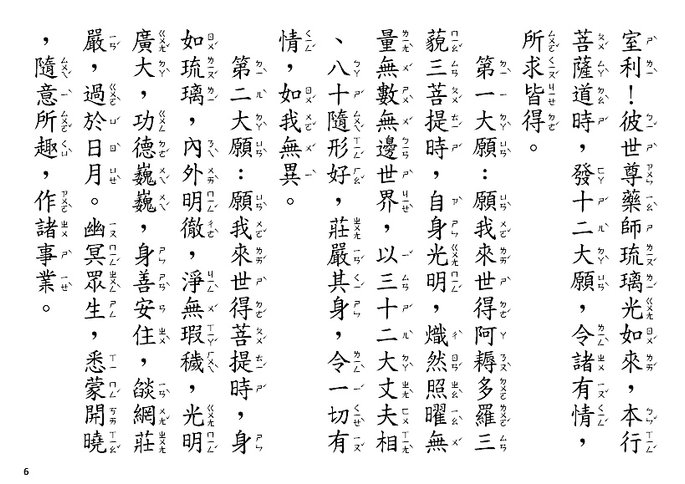 室利！彼世尊藥師琉璃光如來，本行
菩薩道時，發十二大願，令諸有情，
所求皆得。
第一大願：願我來世得阿耨多羅三
藐三菩提時，自身光明，熾然照曜無
量無數無邊世界，以三十二大丈夫相
、八十隨形好，莊嚴其身，令一切有
情，如我無異。
第二大願：願我來世得菩提時，身
如琉璃，內外明徹，淨無瑕穢，光明
廣大，功德巍巍，身善安住，燄網莊
嚴，過於日月。幽冥眾生，悉蒙開曉
，隨意所趣，作諸事業。
6